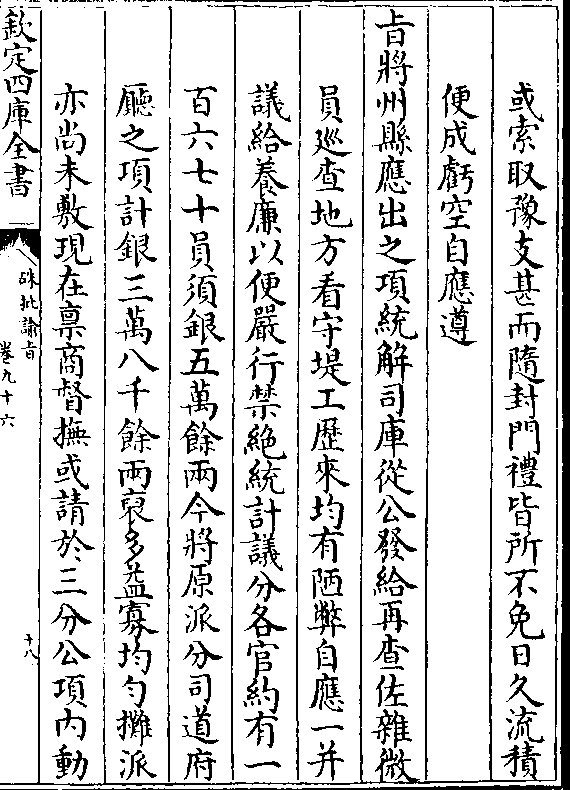 或索取豫支甚而隨封門禮皆所不免日久流積
便成虧空自應遵
㫖將州縣應出之項統解司庫從公發給再查佐雜微
員廵查地方看守堤工歴來均有陋弊自應一并
議給養亷以便嚴行禁絶統計議分各官約有一
百六七十員須銀五萬餘兩今將原派分司道府
廳之項計銀三萬八千餘兩裒多益寡均勻攤派
亦尚未敷現在禀商督撫或請於三分公項内動
欽定四庫全書
硃批諭㫖
卷九十六
十八